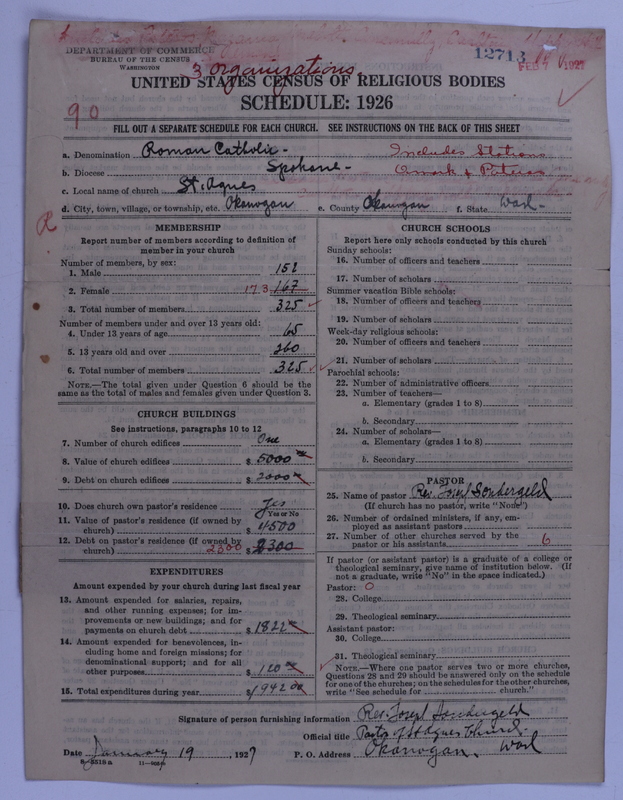 DEPARTMENT OF COMMERCE
BUREAU OF THE CENSUS
WASHINGTON
12713
FEB 1927
3 Organizations
UNITED STATES CENSUS OF RELIGIOUS BODIES
SCHEDULE: 1926
90
FILL OUT A SEPARATE SCHEDULE FOR EACH CHURCH. SEE INSTRUCTIONS ON THE BACK OF THIS SHEET
a. Denomination Roman Catholic - Includes Stations
b. Diocese Spokane - Omak & Pateros
c. Local name of church St. Agnes
d. City, town, village, or township, etc. Okanogan e. County Okanogan f. State Wash-
R
MEMBERSHIP
Report number of members according to definition of
member in your church
Number of members, by sex:
1. Male 152
2. Female 173 167
3. Total number of members 325
Number of members under and over 13 years old:
4. Under 13 years of age 65
5. 13 years old and over 260
6. Total number of members 325
NOTE.—The total given under Question 6 should be the
same as the total of males and females given under Question 3.
CHURCH BUILDINGS
See instructions, paragraphs 10 to 12
7. Number of church edifices One
8. Value of church edifices $ 5000
9. Debt on church edifices $ 2000
10. Does church own pastor's residence Yes
Yes or No
11. Value of pastor's residence (if owned by
church) $ 4500
12. Debt on pastor's residence (if owned by
church) 2300 $ 2300
EXPENDITURES
Amount expended by your church during last fiscal year
13. Amount expended for salaries, repairs,
and other running expenses; for im-
provements or new buildings; and for
payments on church debt $ 1822
14. Amount expended for benevolences, in-
cluding home and foreign missions; for
denominational support; and for all
other purposes $ 120
15. Total expenditures during year $ 1942 00
CHURCH SCHOOLS
Report here only schools conducted by this church
Sunday schools:
16. Number of officers and teachers
17. Number of scholars
Summer vacation Bible schools:
18. Number of officers and teachers
19. Number of scholars
Week-day religious schools:
20. Number of officers and teachers
21. Number of scholars
Parochial schools:
22. Number of administrative officers
23. Number of teachers—
a. Elementary (grades 1 to 8)
b. Secondary
24. Number of scholars—
a. Elementary (grades 1 to 8)
b. Secondary
PASTOR
25. Name of pastor Rev. Josef Sonbergeld
(If church has no pastor, write "None")
26. Number of ordained ministers, if any, em-
ployed as assistant pastors
27. Number of other churches served by the
pastor or his assistants 6
If pastor (or assistant pastor) is a graduate of a college or
theological seminary, give name of institution below. (If
not a graduate, write "No" in the space indicated.)
Pastor: O
28. College
29. Theological seminary
Assistant pastor:
30. College
31. Theological seminary
NOTE.—Where one pastor serves two or more churches,
Questions 28 and 29 should be answered only on the schedule
for one of the churches; on the schedules for the other churches,
write "See schedule for church."
Signature of person furnishing information Rev. Josef Sonbergeld
Official title Pastor of St Agnes Church.
Date January 19, 1927 P. O. Address Okanogan, Wash